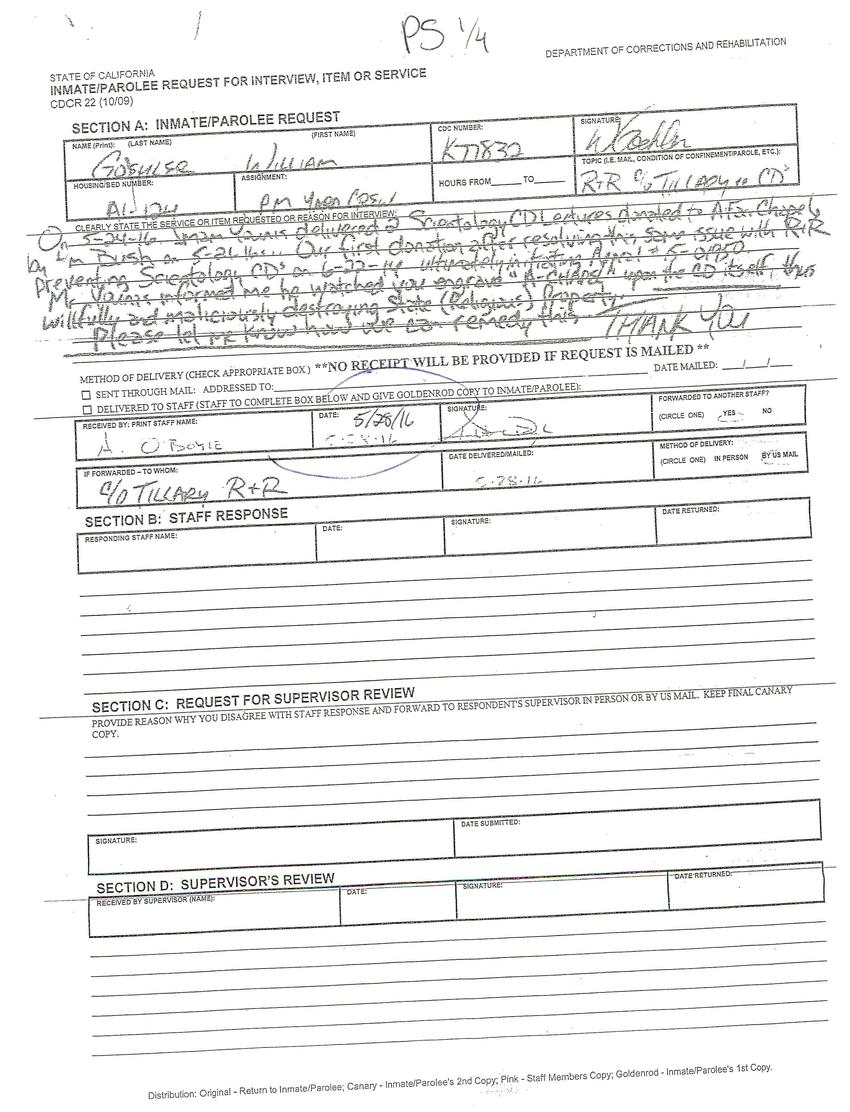 PS 1/4
DEPARTMENT OF CORRECTIONS AND REHABILITATION
STATE OF CALIFORNIA
INMATE/PAROLEE REQUEST FOR INTERVIEW, ITEM OR SERVICE
CDCR 22 (10/09)
SECTION A: INMATE/PAROLEE REQUEST
NAME (Print): (LAST NAME) (FIRST NAME) CDC NUMBER: SIGNATURE:
WILLIAM
HOUSING/BED NUMBER: ASSIGNMENT: HOURS FROM_____ TO_____ TOPIC (I.E. MAIL, CONDITION OF CONFINEMENT/PAROLE, ETC.):
A1-124 PM YARD R+R C/O TILLARY CDs
CLEARLY STATE THE SERVICE OR ITEM REQUESTED OR REASON FOR INTERVIEW:
On 5-24-16 Imam delivered 2 Scientology CD Lectures donated to A Fac. Chapel
by Bush on 5-21-16... Our first donation after resolving this same issue with R+R
Preventing Scientology CDs on 6-22-14 ultimately Appeal #
Mr. informed me he watched you engrave upon the CD itself, thus
willfully and maliciously destroying State (Religious) Property.
Please let me know how we can remedy this. THANK YOU
METHOD OF DELIVERY (CHECK APPROPRIATE BOX) **NO RECEIPT WILL BE PROVIDED IF REQUEST IS MAILED **
☐ SENT THROUGH MAIL: ADDRESSED TO: DATE MAILED: ___/___/___
☐ DELIVERED TO STAFF (STAFF TO COMPLETE BOX BELOW AND GIVE GOLDENROD COPY TO INMATE/PAROLEE):
RECEIVED BY: PRINT STAFF NAME: DATE: SIGNATURE: FORWARDED TO ANOTHER STAFF?
A. O'BOYLE 5/28/16 (CIRCLE ONE) YES NO
5-28-16
IF FORWARDED – TO WHOM: DATE DELIVERED/MAILED: METHOD OF DELIVERY:
C/O TILLARY R+R 5-28-16 (CIRCLE ONE) IN PERSON BY US MAIL
SECTION B: STAFF RESPONSE
RESPONDING STAFF NAME: DATE: SIGNATURE: DATE RETURNED:
SECTION C: REQUEST FOR SUPERVISOR REVIEW
PROVIDE REASON WHY YOU DISAGREE WITH STAFF RESPONSE AND FORWARD TO RESPONDENT'S SUPERVISOR IN PERSON OR BY US MAIL. KEEP FINAL CANARY
COPY.
SIGNATURE: DATE SUBMITTED:
SECTION D: SUPERVISOR'S REVIEW
RECEIVED BY SUPERVISOR (NAME): DATE: SIGNATURE: DATE RETURNED:
Distribution: Original - Return to Inmate/Parolee; Canary - Inmate/Parolee's 2nd Copy; Pink - Staff Members Copy; Goldenrod - Inmate/Parolee's 1st Copy.